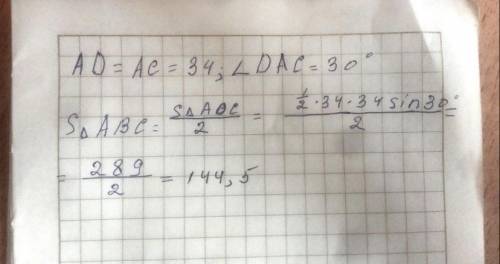 AD = AC = 34; ∠DAC = 30°
S△ABC = S△ADC/2 = (1/2 · 34 · 34 sin30°)/2 =
= 289/2 = 144,5